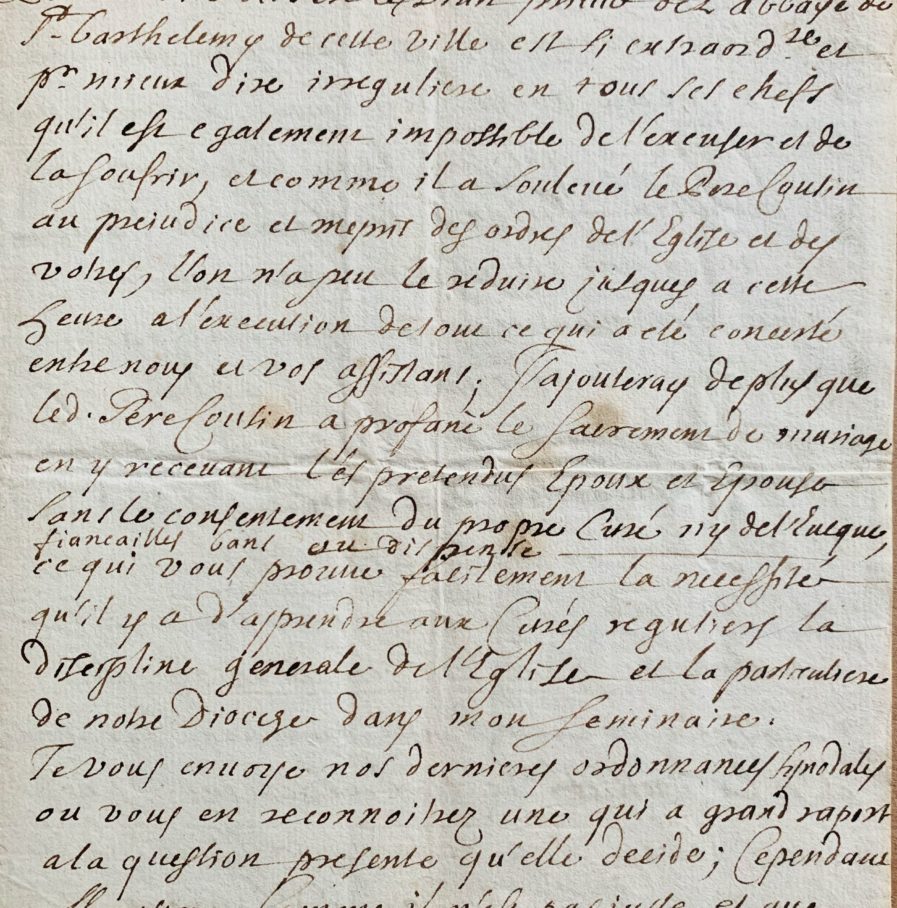 prieur de l'abbaye de
St. Barthelemy de cette ville est si extraordre et
pr mieux dire irreguliere en tous ses chefs
qu'il est egalement impossible de l'excuser et de
la soufrir, et comme il a souleué le Pere Coutin
au preiudice et mepris des ordres de l'Eglise et des
votres, l'on n'a peu le reduire jusques a cette
heure a l'execution de tout ce qui a eté concerté
entre nous et vos assistans; J'ajouteray de plus que
led. Pere Coutin a profané le sacrement de mariage
en y receuant les pretendus Epoux et Epouse
sans le consentement du propre Curé ny de l'Eueque,
fiancailles bans ou dispense
ce qui vous prouue facilement la necessité
qu'il y a d'aprendre aux Curés reguliers la
discipline generale de l'Eglise et la particuliere
de notre Diocese dans mon seminaire.
Je vous enuoye nos dernieres ordonnances synodales
ou vous en reconnoitrez une qui a grand raport
a la question presente qu'elle decide; Cependant
comme il n'est pas juste et que